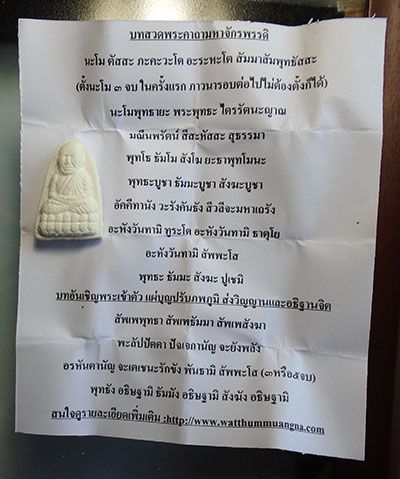 บทสวดพระคาถามหาจักรพรรดิ
นะโม ตัสสะ ภะคะวะโต อะระหะโต สัมมาสัมพุทธัสสะ
(ตั้งนะโม ๓ จบ ในครั้งแรก ภาวนารอบต่อไปไม่ต้องตั้งก็ได้)
นะโมพุทธายะ พระพุทธะ ไตรรัตนะญาณ
มณีนพรัตน์ สีสะหัสสะ สุธรรมา
พุทโธ ธัมโม สังโฆ ยะธาพุทโมนะ
พุทธะบูชา ธัมมะบูชา สังฆะบูชา
อัคคีทานัง วะรังคันธัง สีวลีจะมหาเถรัง
อะหังวันทามิ ทูระโต อะหังวันทามิ ธาตุโย
อะหังวันทามิ สัพพะโส
พุทธะ ธัมมะ สังฆะ ปูเชมิ
บทอันเชิญพระเข้าตัว แผ่บุญปรับภพภูมิ ส่งวิญญานและอธิฐานจิต
สัพเพพุทธา สัพเพธัมมา สัพเพสังฆา
พะลัปปัตตา ปัจเจกานัญ จะยังพลัง
อรหันตานัญ จะเตเชนะรักขัง พันธามิ สัพพะโส (๓หรือ๕จบ)
พุทธัง อธิษฐามิ ธัมมัง อธิษฐามิ สังฆัง อธิษฐามิ
สนใจดูรายละเอียดเพิ่มเติม :http://www.watthummuangna.com